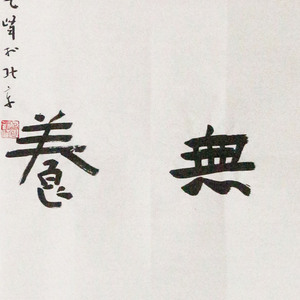 無養
於北京